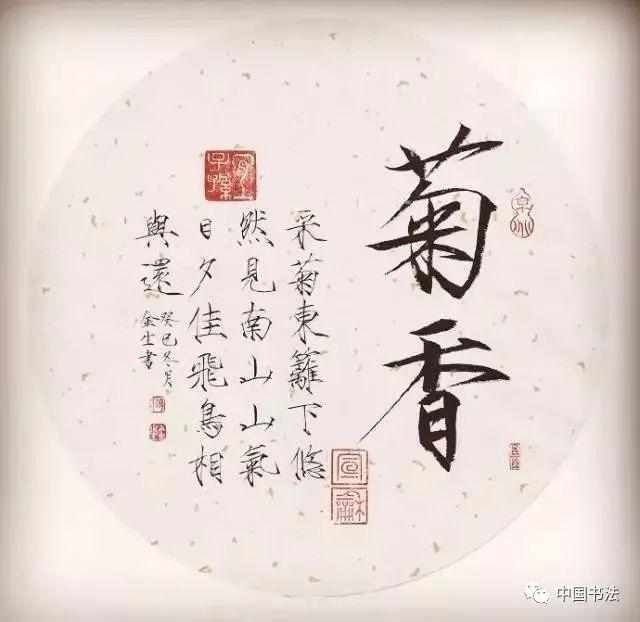 菊香
采菊東籬下悠
然見南山山氣
日夕佳飛鳥相
與還
癸巳冬月
書
中国书法